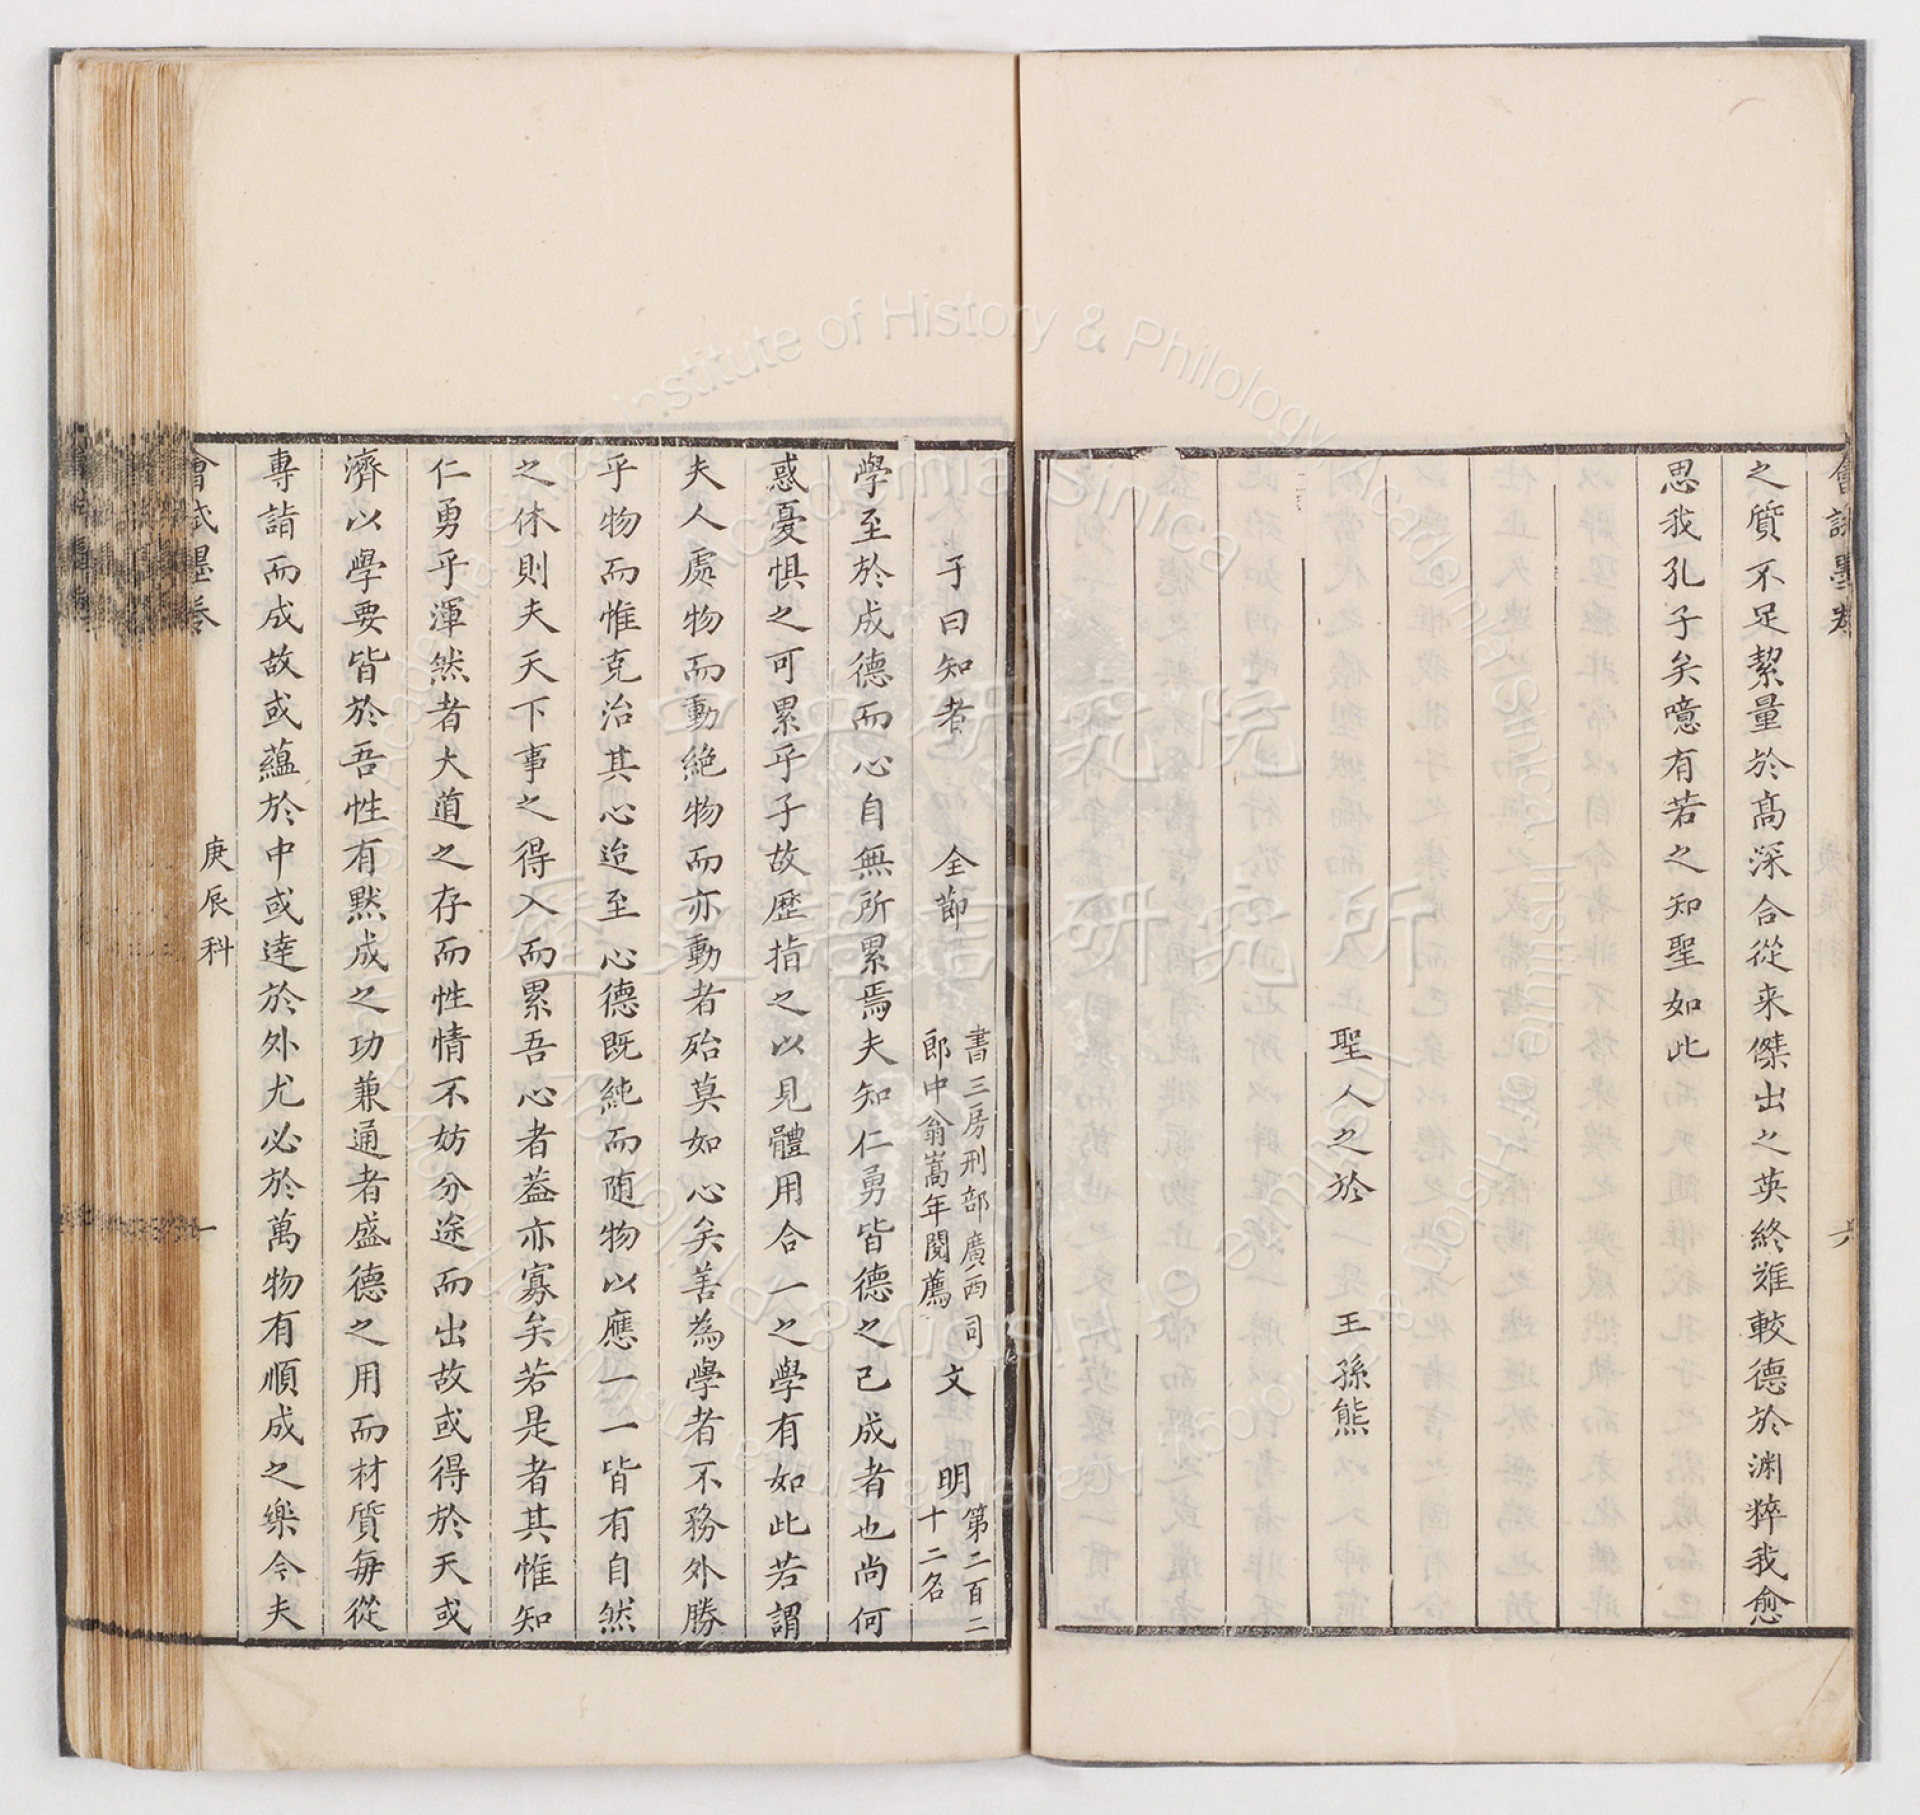 會試墨卷
六
之質不足絜量於高深合從来傑出之英終難較德於淵粹我愈
思我孔子矣噫有若之知聖如此
聖人之於 王孫熊
子曰知者 全節 書三房刑部廣西司郎中翁嵩年閱薦 文明 第二百二十二名
學至於成德而心自無所累焉夫知仁勇皆德之已成者也尚何
惑憂惧之可累乎子故歷指之以見體用合一之學有如此若謂
夫人處物而動絶物而亦動者殆莫如心矣善為學者不務外勝
乎物而惟克治其心迨至心德既純而随物以應一一皆有自然
之休則夫天下事之得入而累吾心者葢亦寡矣若是者其惟知
仁勇乎渾然者大道之存而性情不妨分途而出故或得於天或
濟以學要皆於吾性有黙成之功兼通者盛德之用而材質每從
專詣而成故或蘊於中或達於外尤必於萬物有順成之樂今夫
會試墨卷
庚辰科
一
中央研究院
歷史語言研究所
Institute of History & Philology Academia Sinica